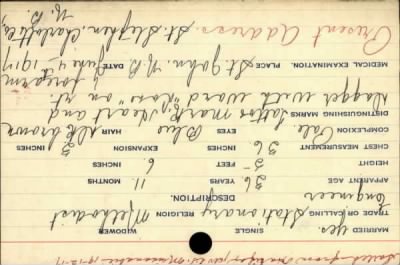 Sailed from Halifax
MARRIED Yes. SINGLE WIDOWER
TRADE OR CALLING Stationary RELIGION Methodist
Engineer
DESCRIPTION.
APPARENT AGE 36 YEARS 11 MONTHS
HEIGHT 5 FEET 6 INCHES
CHEST MEASUREMENT 36 INCHES EXPANSION 3 INCHES
COMPLEXION Pale EYES Blue HAIR dk brown
DISTINGUISHING MARKS Tattoo mark, heart and
dagger with word "Love" on rt.
forearm
MEDICAL EXAMINATION. PLACE St John. N.B. DATE June 4 - 1917
Present Address. St. Stephen. Charlotte Co,
N. B.